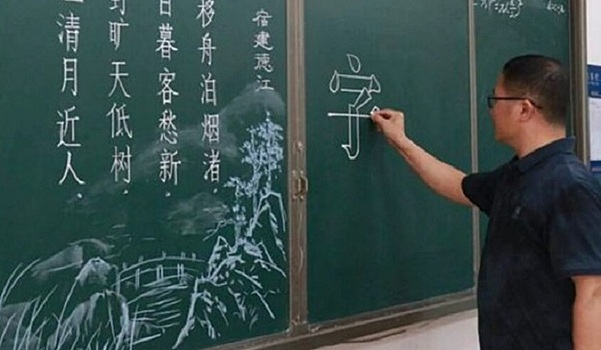 宿建德江
移舟泊烟渚，
日暮客愁新。
旷天低树，
清月近人。
字